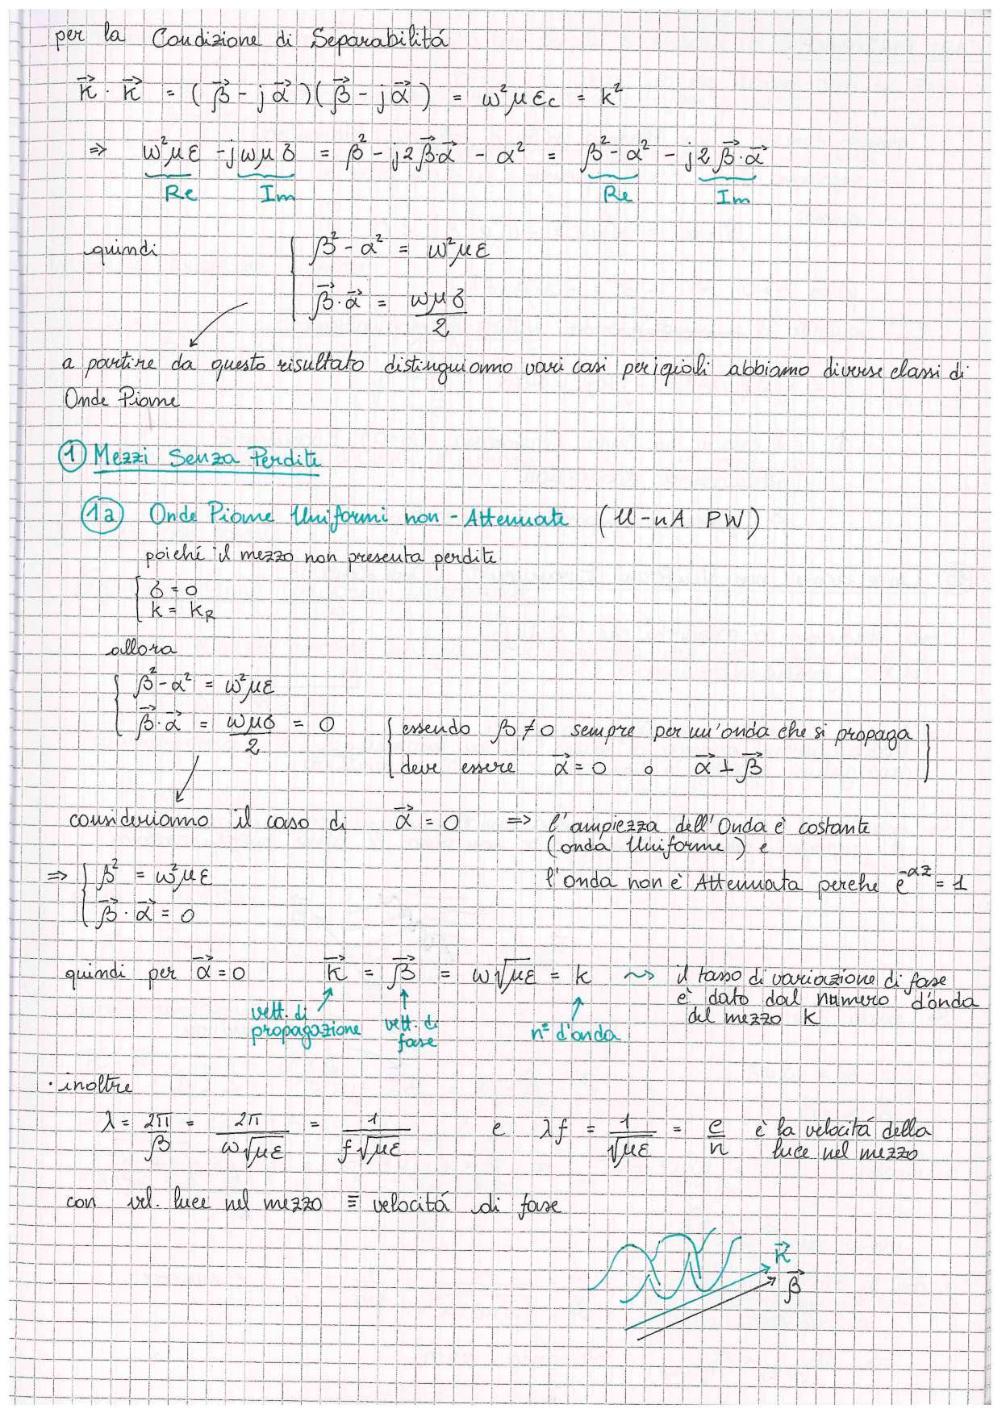 per la Condizione di Separabilitá
k⃗ · k⃗ = (β⃗ - jα⃗)(β⃗ - jα⃗) = ω²μεc = k²
⇒ ω²με - jωμσ = β² - j2β⃗·α⃗ - α² = β² - α² - j2β⃗·α⃗
Re Im Re Im
quindi { β² - α² = ω²με
β⃗·α⃗ = ωμσ/2
a partire da questo risultato distinguiamo vari casi per i quali abbiamo diverse classi di
Onde Piane
1 Mezzi Senza Perdite
1a Onde Piane Uniformi non-Attenuate (U-nA PW)
poiché il mezzo non presenta perdite
{ σ = 0
k = kR
allora
{ β² - α² = ω²με
β⃗·α⃗ = ωμσ/2 = 0 { essendo β ≠ 0 sempre per un'onda che si propaga
deve essere α⃗ = 0 o α⃗ ⊥ β⃗ }
consideriamo il caso di α⃗ = 0 ⇒ l'ampiezza dell'Onda è costante
(onda Uniforme) e
⇒ { β² = ω²με l'onda non è Attenuata perche e^-αz = 1
β⃗·α⃗ = 0
quindi per α⃗ = 0 k⃗ = β⃗ = ω√με = k ⤳ il tasso di variazione di fase
è dato dal numero d'onda
del mezzo k
vett. di propagazione vett. di fase n° d'onda
· inoltre
λ = 2π/β = 2π/ω√με = 1/f√με e λf = 1/√με = c/n è la velocitá della
luce nel mezzo
con vel. luce nel mezzo ≡ velocitá di fase
k⃗
β⃗